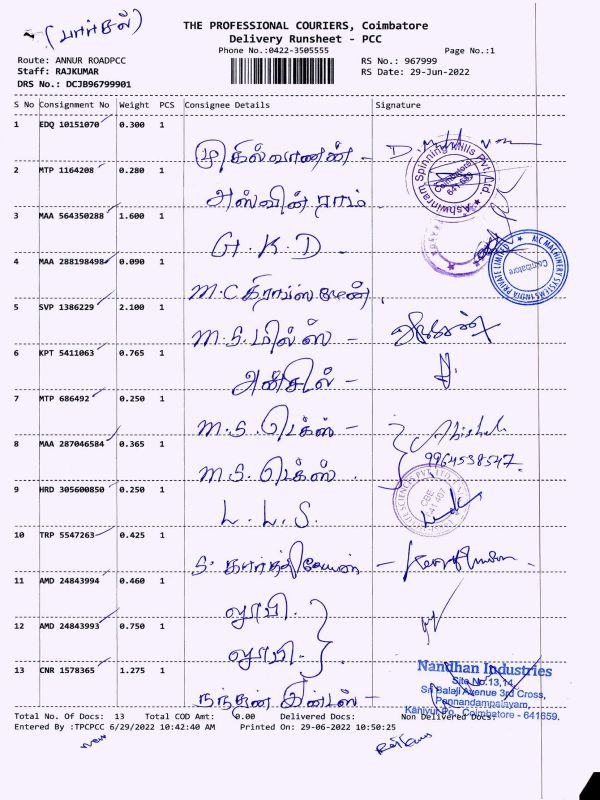 (பார்சல்)
THE PROFESSIONAL COURIERS, Coimbatore
Delivery Runsheet - PCC
Phone No.:0422-3505555
Page No.:1
Route: ANNUR ROADPCC
RS No.: 967999
Staff: RAJKUMAR
RS Date: 29-Jun-2022
DRS No.: DCJB96799901
S No Consignment No Weight PCS Consignee Details Signature
1 EDQ 10151070 0.300 1
முகில்வாணன் -
2 MTP 1164208 0.280 1
அஸ்வின் ராம்
Ashwinram Spinning Mills Pvt. Ltd.
Coimbatore
641 659
3 MAA 564350288 1.600 1
G.K.D -
4 MAA 288198498 0.090 1
M.C
MC MACHINERY SYSTEMS INDIA PRIVATE LIMITED
Coimbatore
5 SVP 1386229 2.100 1
M.S. மில்ஸ் -
6 KPT 5411063 0.765 1
7 MTP 686492 0.250 1
M.S. டெக்ஸ் -
8 MAA 287046584 0.365 1
M.S. டெக்ஸ் .
9964538547
9 HRD 305600850 0.250 1
L.L.S.
CBE
641 407
10 TRP 5547263 0.425 1
S. கார்த்திகேயன் -
11 AMD 24843994 0.460 1
12 AMD 24843993 0.750 1
13 CNR 1578365 1.275 1
நந்தன் இன்டஸ் -
Nandhan Industries
Site No.13,14,
Sri Balaji Avenue 3rd Cross,
Pennandampalayam,
Kaniyur Po., Coimbatore - 641659.
Total No. Of Docs: 13 Total COD Amt: 0.00 Delivered Docs: Non Delivered Docs:
Entered By :TPCPCC 6/29/2022 10:42:40 AM Printed On: 29-06-2022 10:50:25